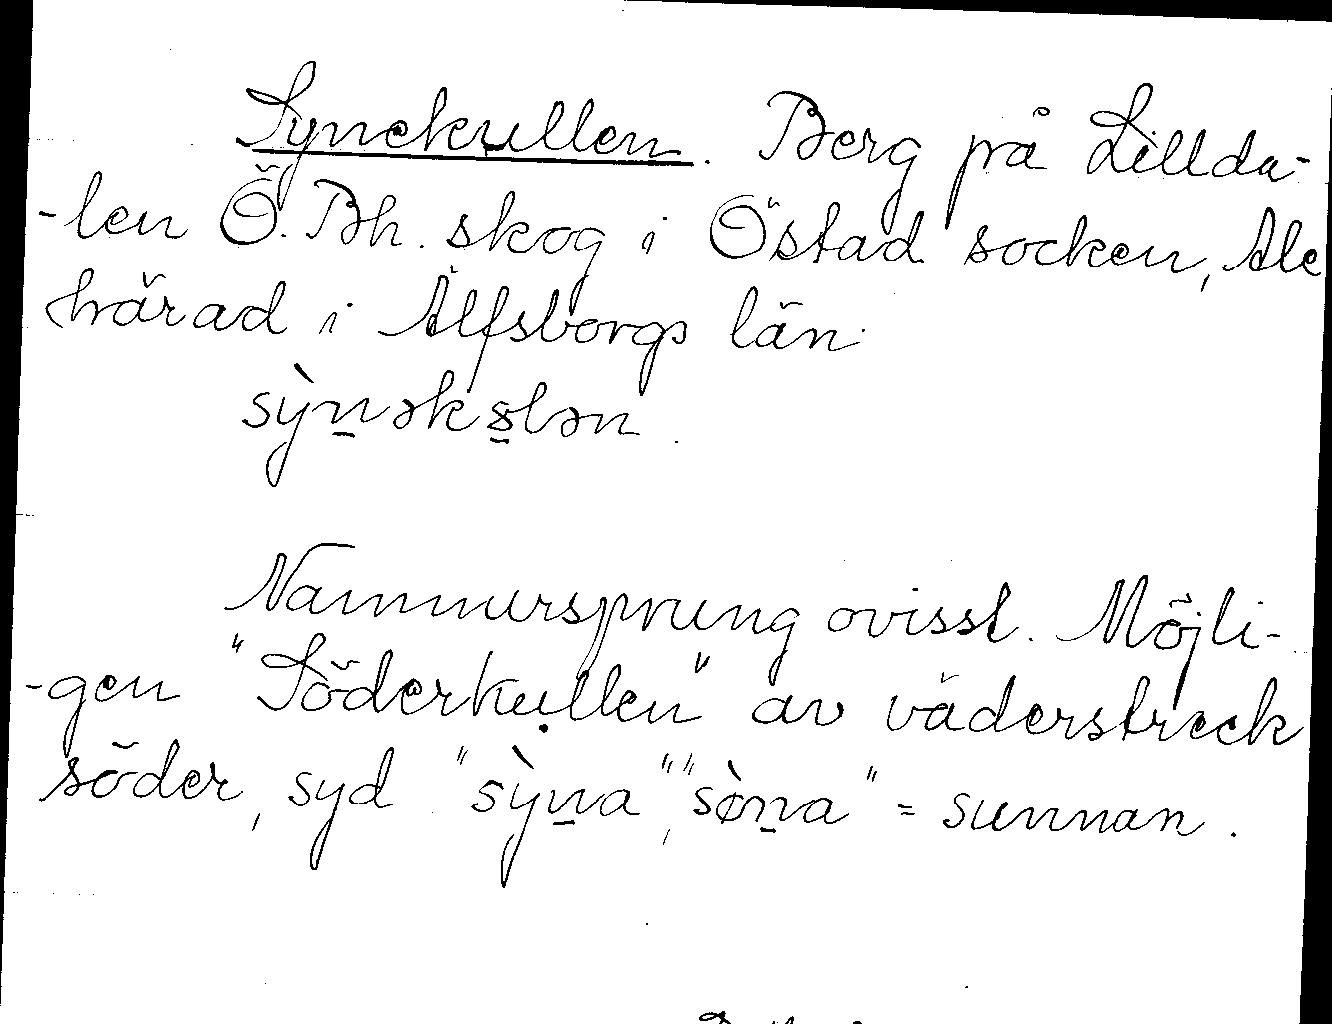 Synekullen. Berg på Lillda-
-len Ö. Bh. skog i Östad socken, Ale
härad i Älfsborgs län.
sỳn̲əks̲lən.
Namnursprung ovisst. Möjli-
-gen "Söderkullen" av väderstreck
söder, syd "sỳn̲a", "sø̀n̲a" = sunnan.